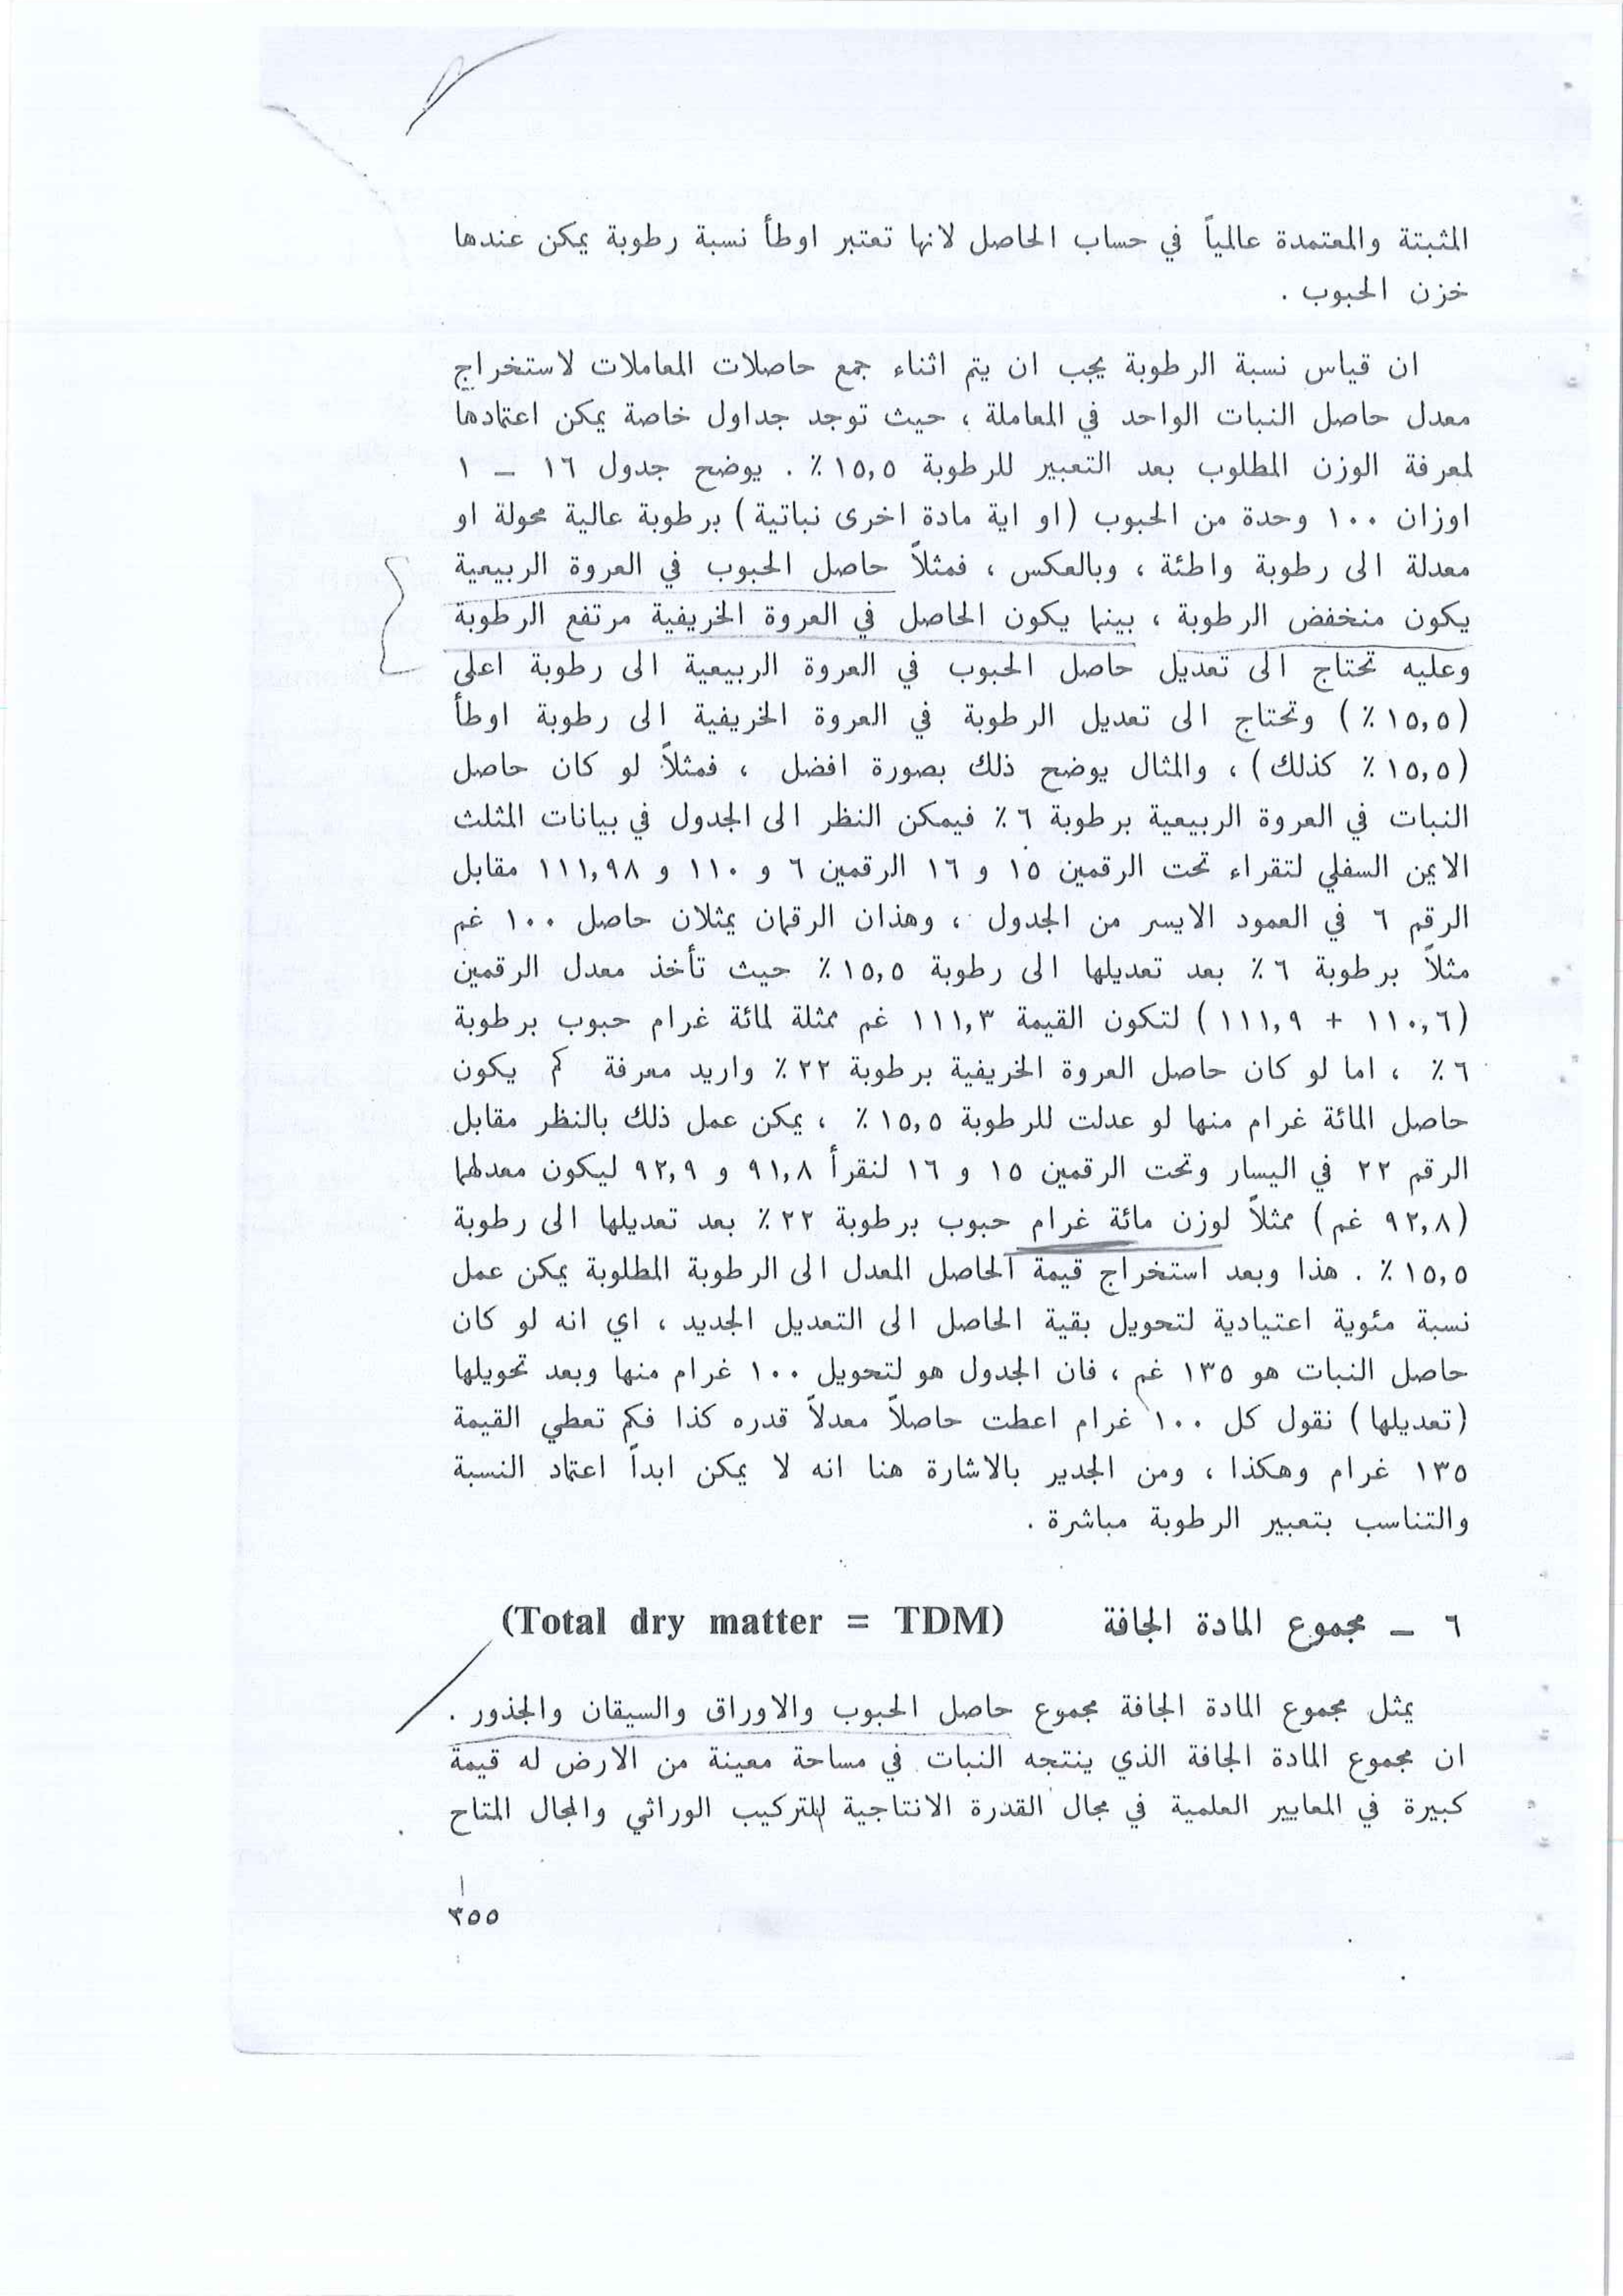 المثبتة والمعتمدة عالمياً في حساب الحاصل لانها تعتبر اوطأ نسبة رطوبة يمكن عندها
خزن الحبوب .
ان قياس نسبة الرطوبة يجب ان يتم اثناء جمع حاصلات المعاملات لاستخراج
معدل حاصل النبات الواحد في المعاملة ، حيث توجد جداول خاصة يمكن اعتمادها
لمعرفة الوزن المطلوب بعد التعبير للرطوبة ١٥,٥ ٪ . يوضح جدول ١٦ – ١
اوزان ١٠٠ وحدة من الحبوب (او اية مادة اخرى نباتية) برطوبة عالية محولة او
معدلة الى رطوبة واطئة ، وبالعكس ، فمثلاً حاصل الحبوب في العروة الربيعية
يكون منخفض الرطوبة ، بينما يكون الحاصل في العروة الخريفية مرتفع الرطوبة
وعليه تحتاج الى تعديل حاصل الحبوب في العروة الربيعية الى رطوبة اعلى
(١٥,٥ ٪) وتحتاج الى تعديل الرطوبة في العروة الخريفية الى رطوبة اوطأ
(١٥,٥ ٪ كذلك) ، والمثال يوضح ذلك بصورة افضل ، فمثلاً لو كان حاصل
النبات في العروة الربيعية برطوبة ٦ ٪ فيمكن النظر الى الجدول في بيانات المثلث
الايمن السفلي لتقراء تحت الرقمين ١٥ و ١٦ الرقمين ٦ و ١١٠ و ١١١,٩٨ مقابل
الرقم ٦ في العمود الايسر من الجدول ، وهذان الرقمان يمثلان حاصل ١٠٠ غم
مثلاً برطوبة ٦ ٪ بعد تعديلها الى رطوبة ١٥,٥ ٪ حيث تأخذ معدل الرقمين
(١١٠,٦ + ١١١,٩) لتكون القيمة ١١١,٣ غم ممثلة لمائة غرام حبوب برطوبة
٦ ٪ ، اما لو كان حاصل العروة الخريفية برطوبة ٢٢ ٪ واريد معرفة كم يكون
حاصل المائة غرام منها لو عدلت للرطوبة ١٥,٥ ٪ ، يمكن عمل ذلك بالنظر مقابل
الرقم ٢٢ في اليسار وتحت الرقمين ١٥ و ١٦ لنقرأ ٩١,٨ و ٩٢,٩ ليكون معدلهما
(٩٢,٨ غم) ممثلاً لوزن مائة غرام حبوب برطوبة ٢٢ ٪ بعد تعديلها الى رطوبة
١٥,٥ ٪ . هذا وبعد استخراج قيمة الحاصل المعدل الى الرطوبة المطلوبة يمكن عمل
نسبة مئوية اعتيادية لتحويل بقية الحاصل الى التعديل الجديد ، اي انه لو كان
حاصل النبات هو ١٣٥ غم ، فان الجدول هو لتحويل ١٠٠ غرام منها وبعد تحويلها
(تعديلها) نقول كل ١٠٠ غرام اعطت حاصلاً معدلاً قدره كذا فكم تعطي القيمة
١٣٥ غرام وهكذا ، ومن الجدير بالاشارة هنا انه لا يمكن ابداً اعتماد النسبة
والتناسب بتعبير الرطوبة مباشرة .
٦ – مجموع المادة الجافة (Total dry matter = TDM)
يمثل مجموع المادة الجافة مجموع حاصل الحبوب والاوراق والسيقان والجذور .
ان مجموع المادة الجافة الذي ينتجه النبات في مساحة معينة من الارض له قيمة
كبيرة في المعايير العلمية في مجال القدرة الانتاجية للتركيب الوراثي والمجال المتاح
٣٥٥